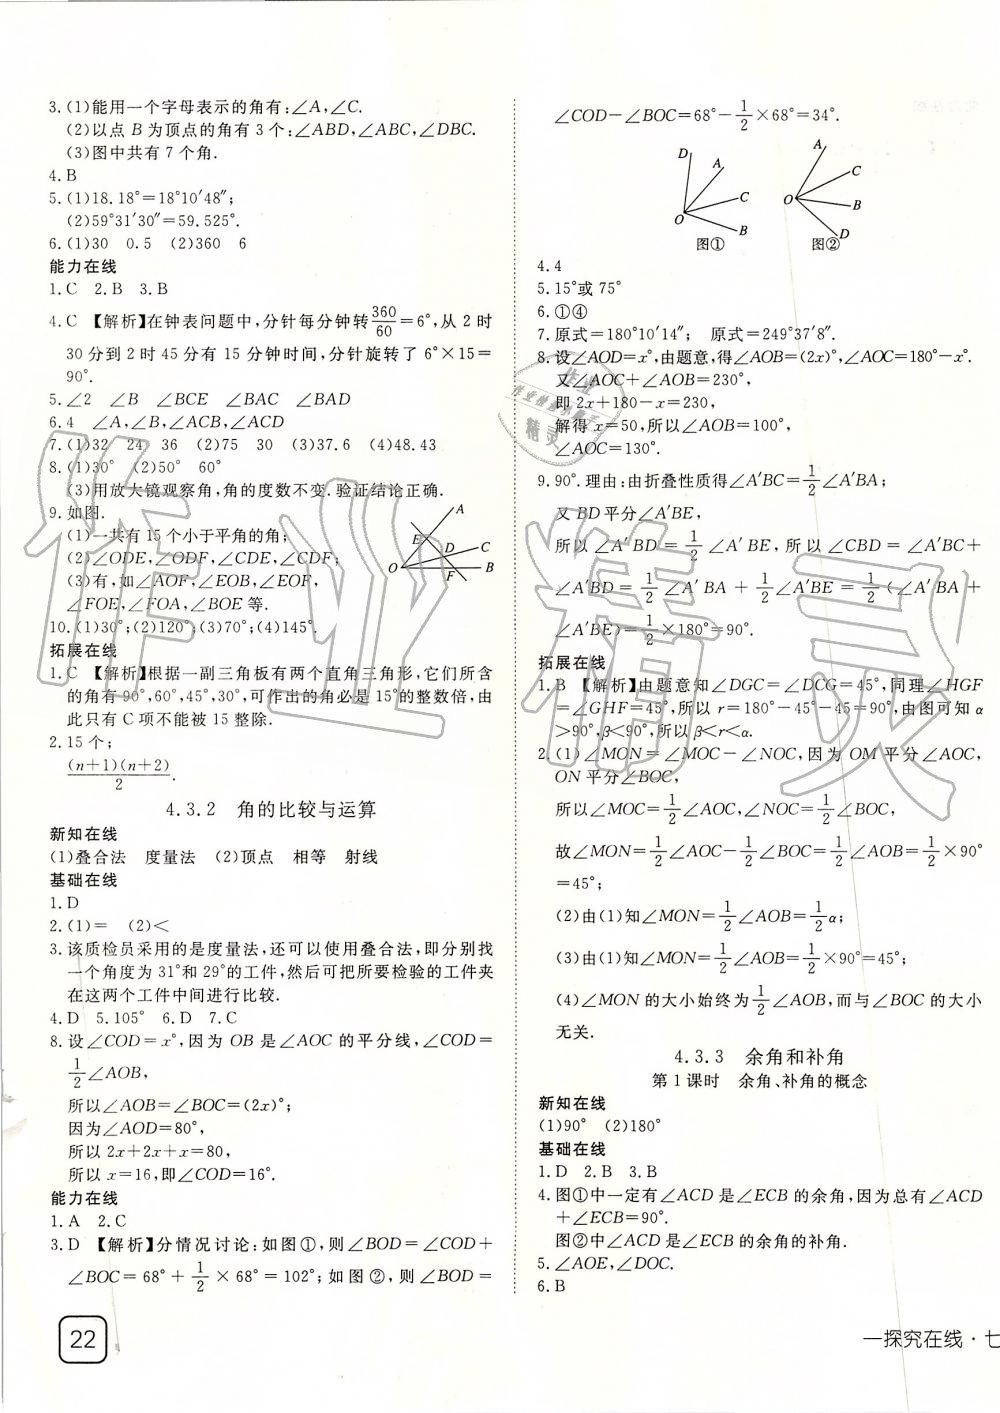 3.(1)能用一个字母表示的角有:∠A,∠C.
(2)以点 B 为顶点的角有 3 个:∠ABD,∠ABC,∠DBC.
(3)图中共有 7 个角.
4.B
5.(1)18.18°=18°10′48″;
(2)59°31′30″=59.525°.
6.(1)30 0.5 (2)360 6
能力在线
1.C 2.B 3.B
4.C 【解析】在钟表问题中,分针每分钟转360/60=6°,从 2 时
30分到 2 时 45 分有 15 分钟时间,分针旋转了 6°×15=
90°.
5.∠2 ∠B ∠BCE ∠BAC ∠BAD
6.4 ∠A,∠B,∠ACB,∠ACD
7.(1)32 24 36 (2)75 30 (3)37.6 (4)48.43
8.(1)30° (2)50° 60°
(3)用放大镜观察角,角的度数不变.验证结论正确.
9.如图.
(1)一共有 15 个小于平角的角;
(2)∠ODE,∠ODF,∠CDE,∠CDF;
(3)有,如∠AOF,∠EOB,∠EOF,
∠FOE,∠FOA,∠BOE 等.
A
E
D
C
O
F
B
10.(1)30°;(2)120°;(3)70°;(4)145°.
拓展在线
1.C 【解析】根据一副三角板有两个直角三角形,它们所含
的角有 90°,60°,45°,30°,可作出的角必是 15°的整数倍,由
此只有 C 项不能被 15 整除.
2.15 个;
(n+1)(n+2)/2.
4.3.2 角的比较与运算
新知在线
(1)叠合法 度量法 (2)顶点 相等 射线
基础在线
1.D
2.(1)= (2)<
3.该质检员采用的是度量法,还可以使用叠合法,即分别找
一个角度为 31°和 29°的工件,然后可把所要检验的工件夹
在这两个工件中间进行比较.
4.D 5.105° 6.D 7.C
8.设∠COD=x°,因为 OB 是∠AOC 的平分线,∠COD=
1/2∠AOB,
所以∠AOB=∠BOC=(2x)°;
因为∠AOD=80°,
所以 2x+2x+x=80,
所以 x=16,即∠COD=16°.
能力在线
1.A 2.C
3.D 【解析】分情况讨论:如图①,则∠BOD=∠COD+
∠BOC=68°+1/2×68°=102°;如图②,则∠BOD=
22
∠COD-∠BOC=68°-1/2×68°=34°.
D
A
C
O
B
图①
A
C
O
B
D
图②
4.4
5.15°或 75°
6.①④
7.原式=180°10′14″; 原式=249°37′8″.
8.设∠AOD=x°,由题意,得∠AOB=(2x)°,∠AOC=180°-x°.
又∠AOC+∠AOB=230°,
即 2x+180-x=230,
解得 x=50,所以∠AOB=100°,
∠AOC=130°.
9.90°.理由:由折叠性质得∠A′BC=1/2∠A′BA;
又 BD 平分∠A′BE,
所以∠A′BD=1/2∠A′BE,所以∠CBD=∠A′BC+
∠A′BD=1/2∠A′BA+1/2∠A′BE=1/2(∠A′BA+
∠A′BE)=1/2×180°=90°.
拓展在线
1.B 【解析】由题意知∠DGC=∠DCG=45°,同理∠HGF
=∠GHF=45°,所以 r=180°-45°-45=90°,由图可知 α
>90°,β<90°,所以 β<r<α.
2.(1)∠MON=∠MOC-∠NOC,因为 OM 平分∠AOC,
ON 平分∠BOC,
所以∠MOC=1/2∠AOC,∠NOC=1/2∠BOC,
故∠MON=1/2∠AOC-1/2∠BOC=1/2∠AOB=1/2×90°
=45°;
(2)由(1)知∠MON=1/2∠AOB=1/2α;
(3)由(1)知∠MON=1/2∠AOB=1/2×90°=45°;
(4)∠MON 的大小始终为1/2∠AOB,而与∠BOC 的大小
无关.
4.3.3 余角和补角
第 1 课时 余角、补角的概念
新知在线
(1)90° (2)180°
基础在线
1.D 2.B 3.B
4.图①中一定有∠ACD 是∠ECB 的余角,因为总有∠ACD
+∠ECB=90°.
图②中∠ACD 是∠ECB 的余角的补角.
5.∠AOE,∠DOC.
6.B
一探究在线·七
作业精灵